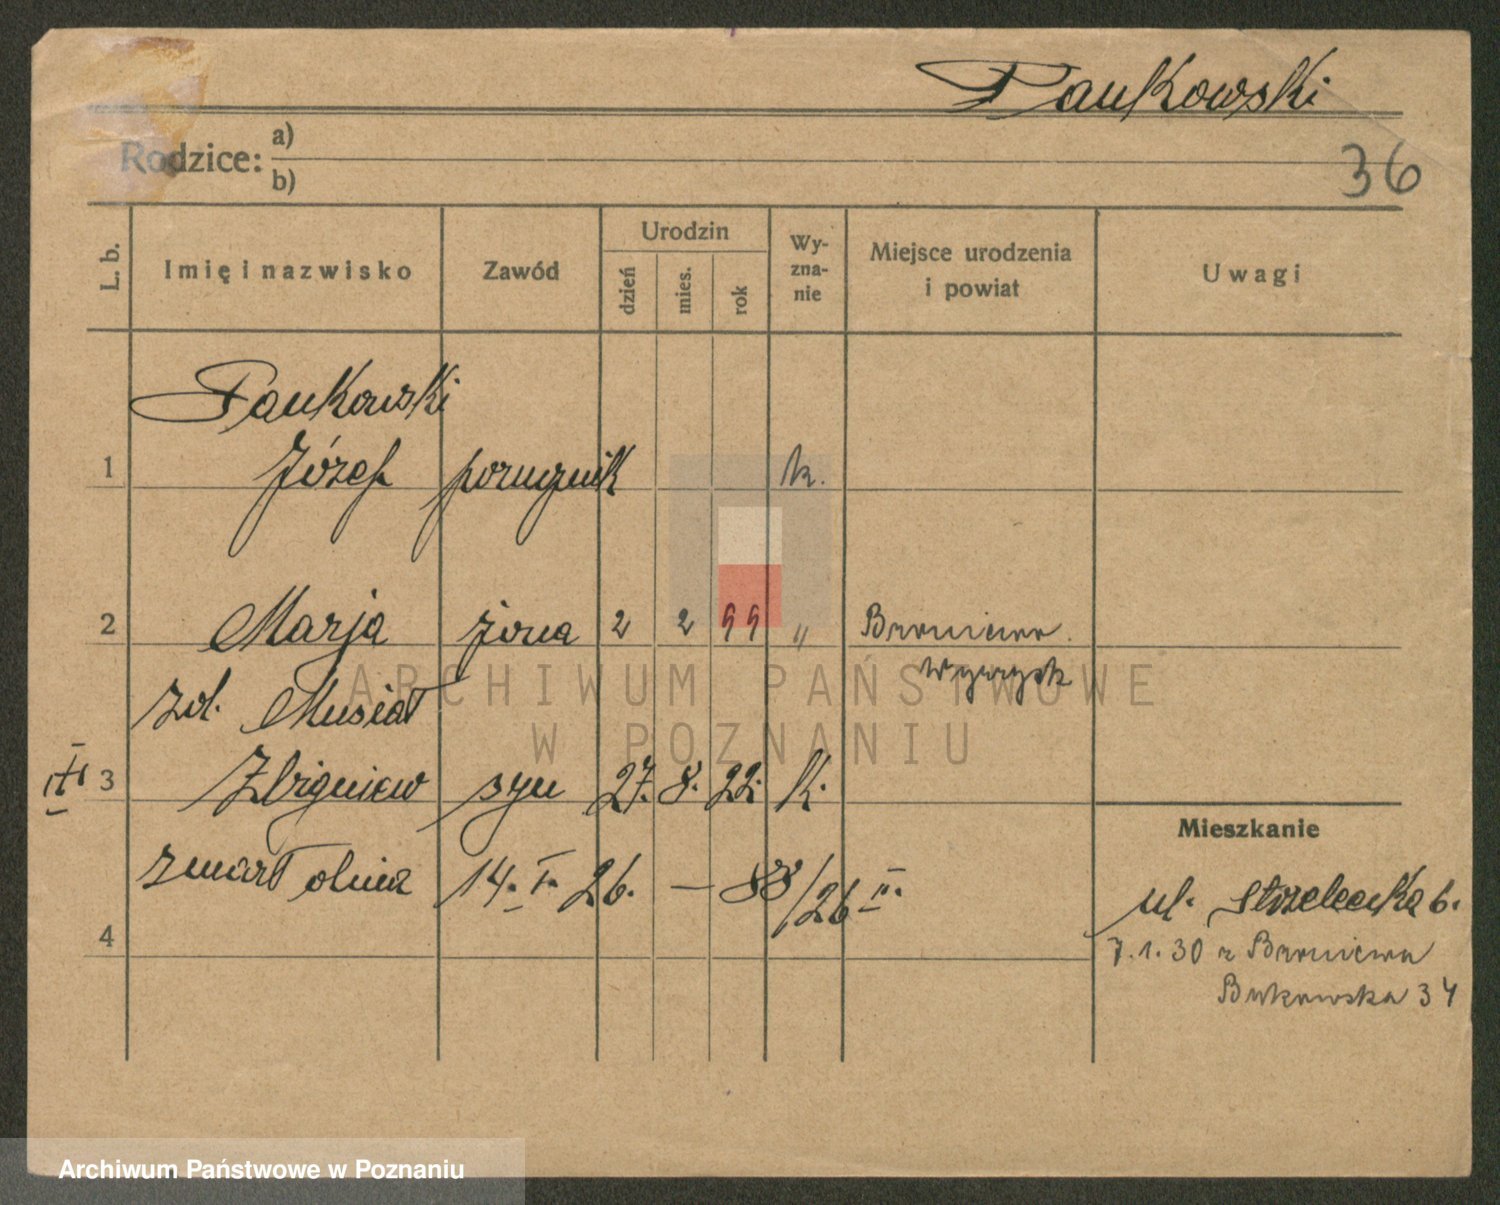 Pankowski
Rodzice: a)
b)
36
L. b. Imię i nazwisko Zawód Urodzin dzień mies. rok Wyzna-nie Miejsce urodzenia i powiat Uwagi
Pankowski
1 Józef porucznik k.
2 Marja żona 2 2 99 "
Wyrzysk
zd. Musiał
III 3 Zbigniew syn 27. 8. 22. k.
zmarł dnia 14. I. 26. — 88/26 II.
4
Mieszkanie
ul. Strzelecka 6.
7.1.30 z
Bukowska 34
ARCHIWUM PAŃSTWOWE
W POZNANIU
Archiwum Państwowe w Poznaniu